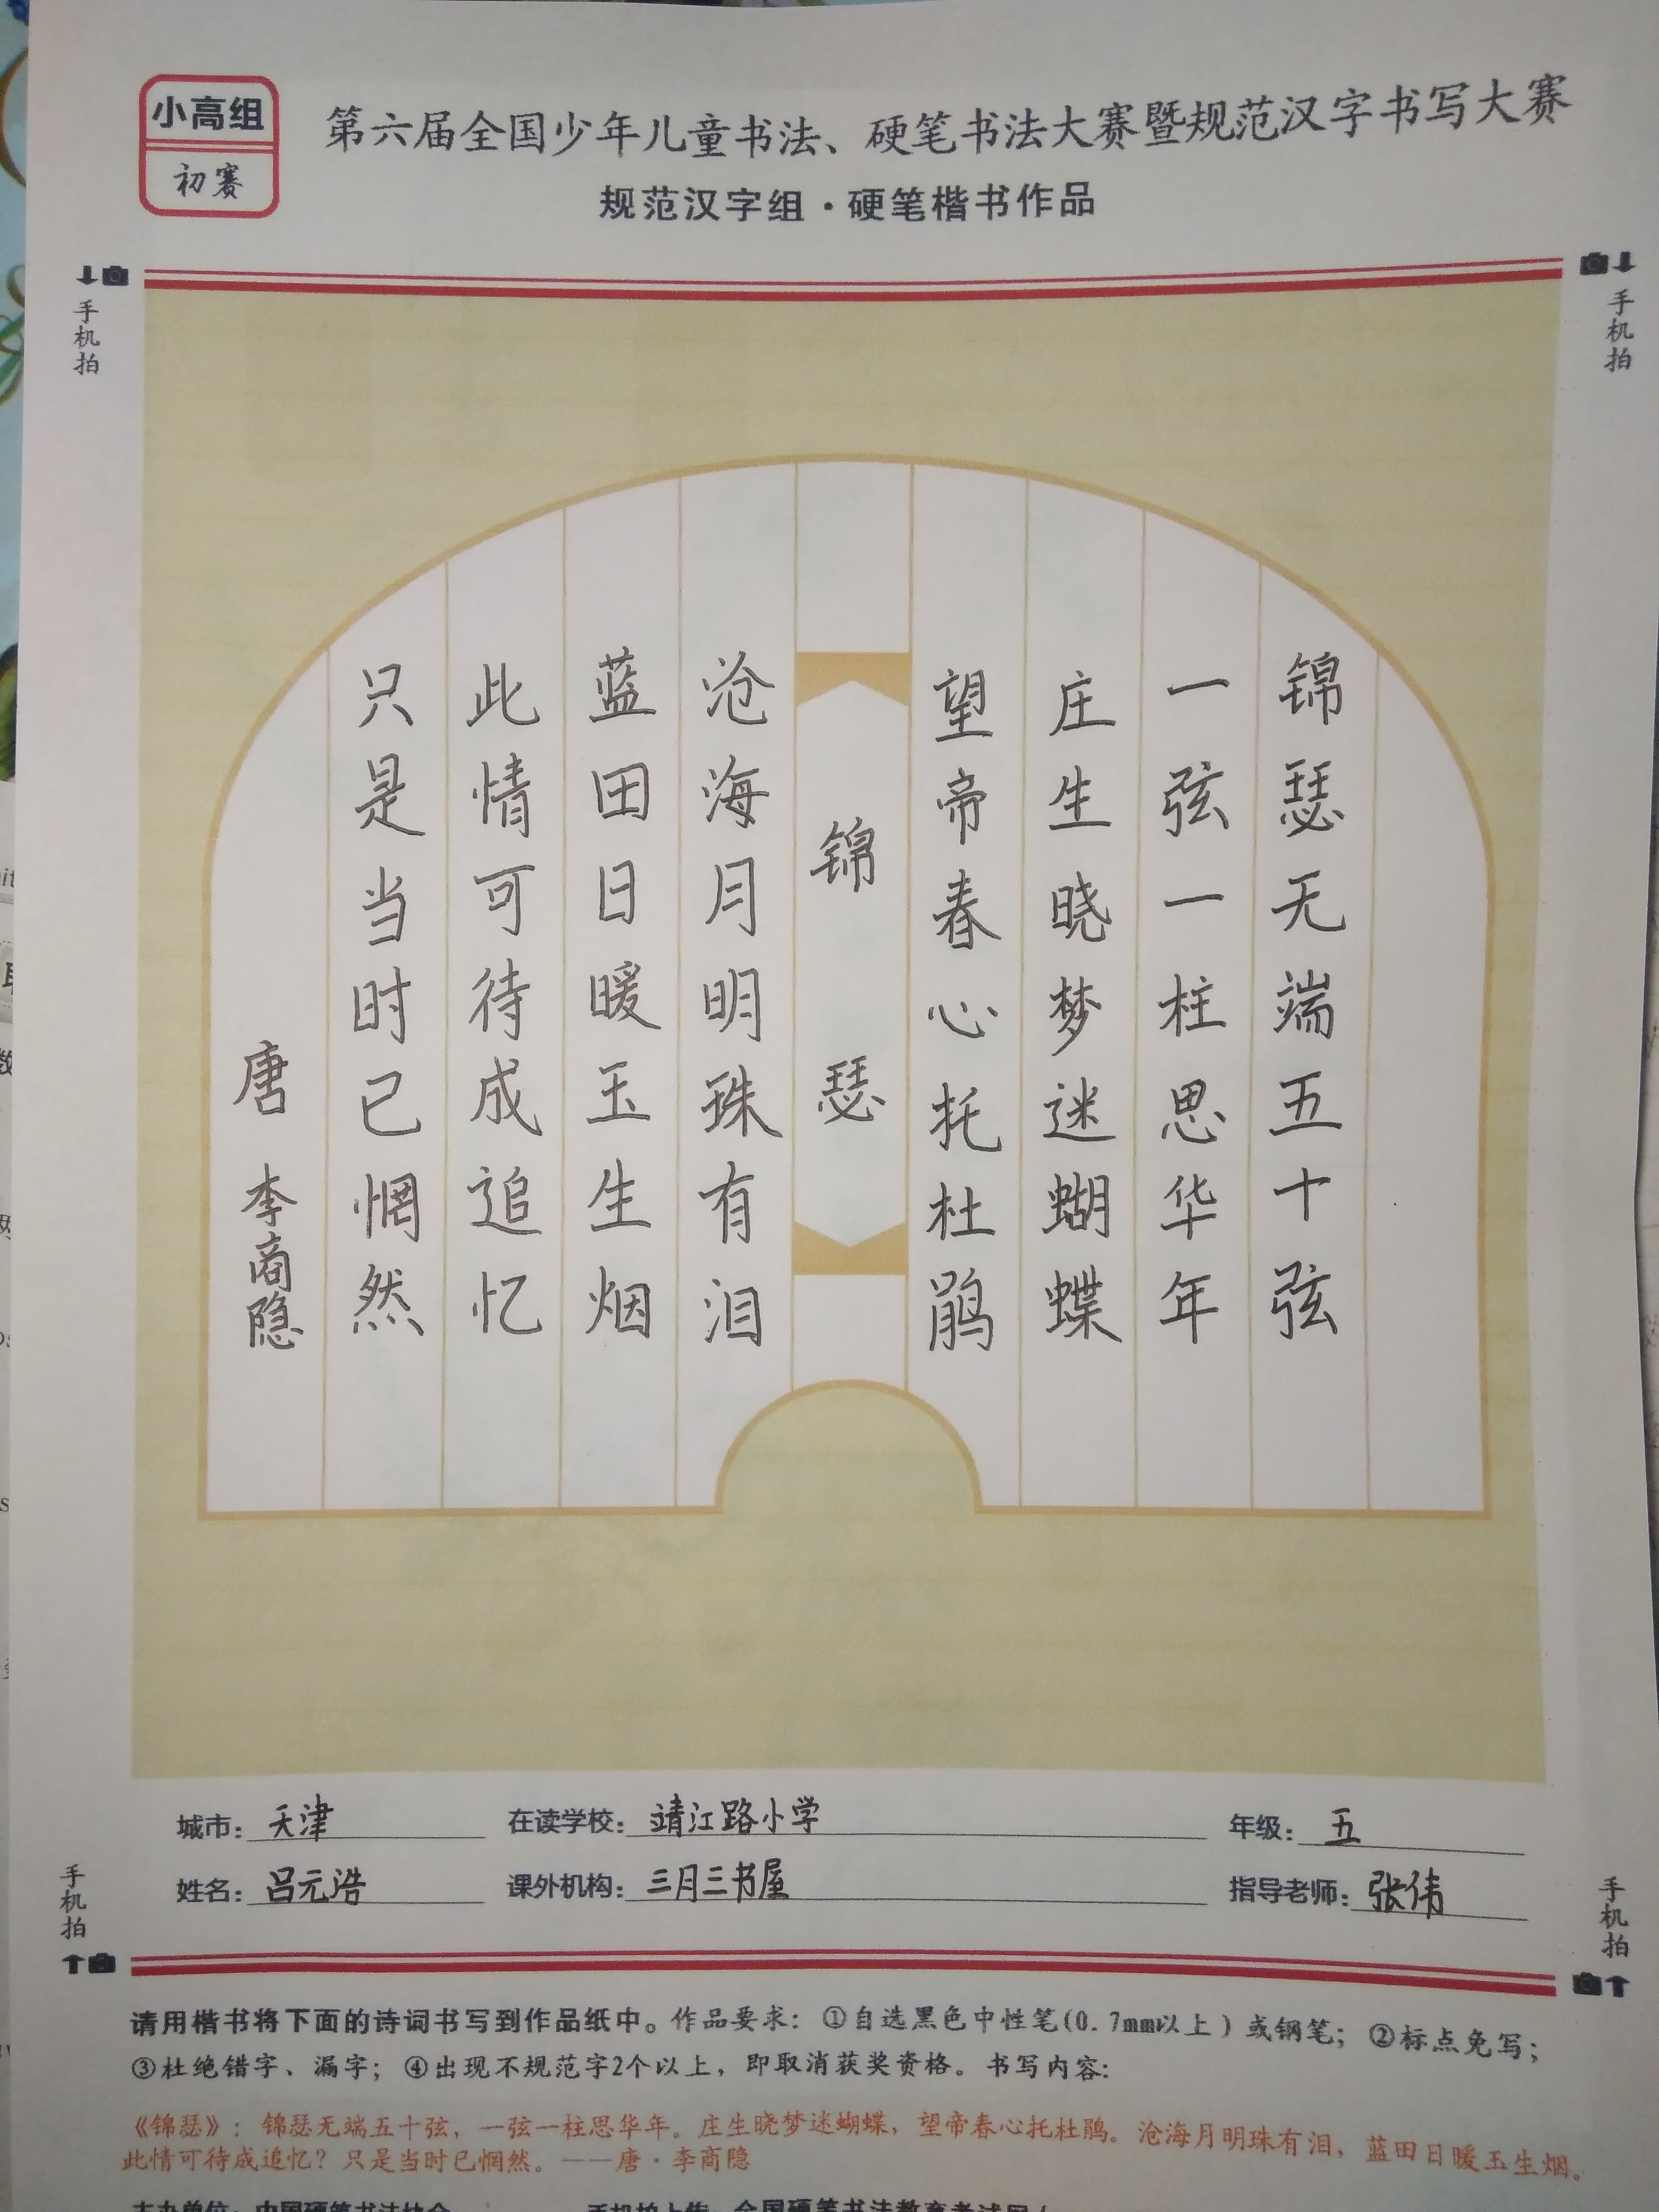 小高组
初赛
第六届全国少年儿童书法、硬笔书法大赛暨规范汉字书写大赛
规范汉字组·硬笔楷书作品
手机拍
手机拍
锦瑟无端五十弦
一弦一柱思华年
庄生晓梦迷蝴蝶
望帝春心托杜鹃
锦瑟
沧海月明珠有泪
蓝田日暖玉生烟
此情可待成追忆
只是当时已惘然
唐 李商隐
城市：天津 在读学校：靖江路小学 年级：五
姓名：吕元浩 课外机构：三月三书屋 指导老师：张伟
手机拍
手机拍
请用楷书将下面的诗词书写到作品纸中。作品要求：①自选黑色中性笔(0.7mm以上)或钢笔；②标点免写；
③杜绝错字、漏字；④出现不规范字2个以上，即取消获奖资格。书写内容：
《锦瑟》：锦瑟无端五十弦，一弦一柱思华年。庄生晓梦迷蝴蝶，望帝春心托杜鹃。沧海月明珠有泪，蓝田日暖玉生烟。
此情可待成追忆？只是当时已惘然。——唐·李商隐